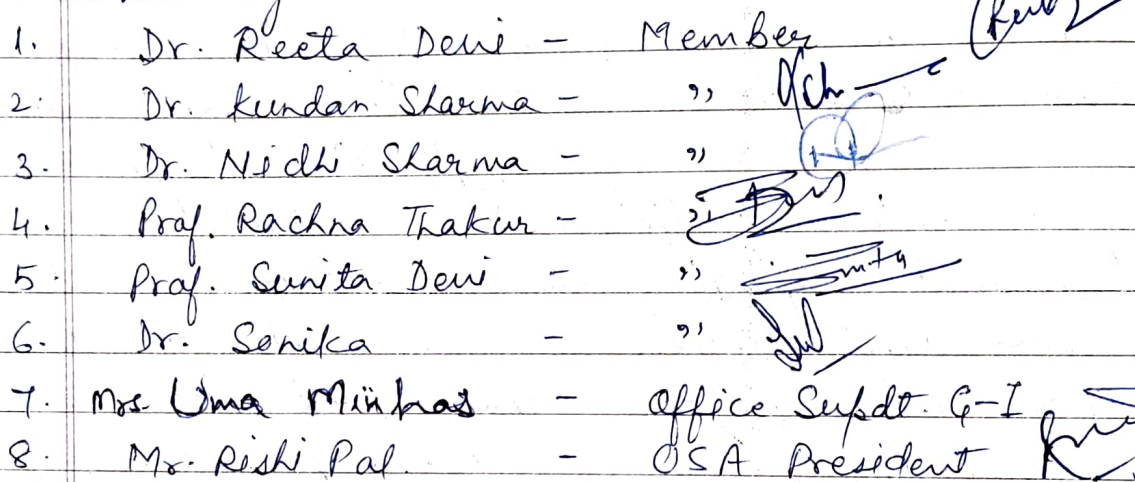 1. Dr. Reeta Devi - Member
2. Dr. Kundan Sharma - ,,
3. Dr. Nidhi Sharma - ,,
4. Prof. Rachna Thakur - ,,
5. Prof. Sunita Devi - ,,
6. Dr. Sonika - ,,
7. Mrs. Uma Minhas - Office Supdt. G-I
8. Mr. Rishi Pal. - OSA President